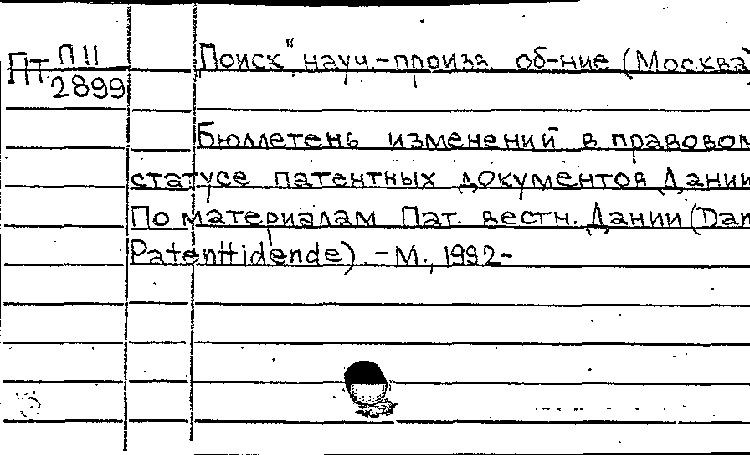 Пт П11
2899
„Поиск" науч.-произв. об-ние (Москва)
Бюллетень изменений в правовом
статусе патентных документов Дании
По материалам Пат. вестн. Дании (Dan
Patenttidende). - М., 1992-